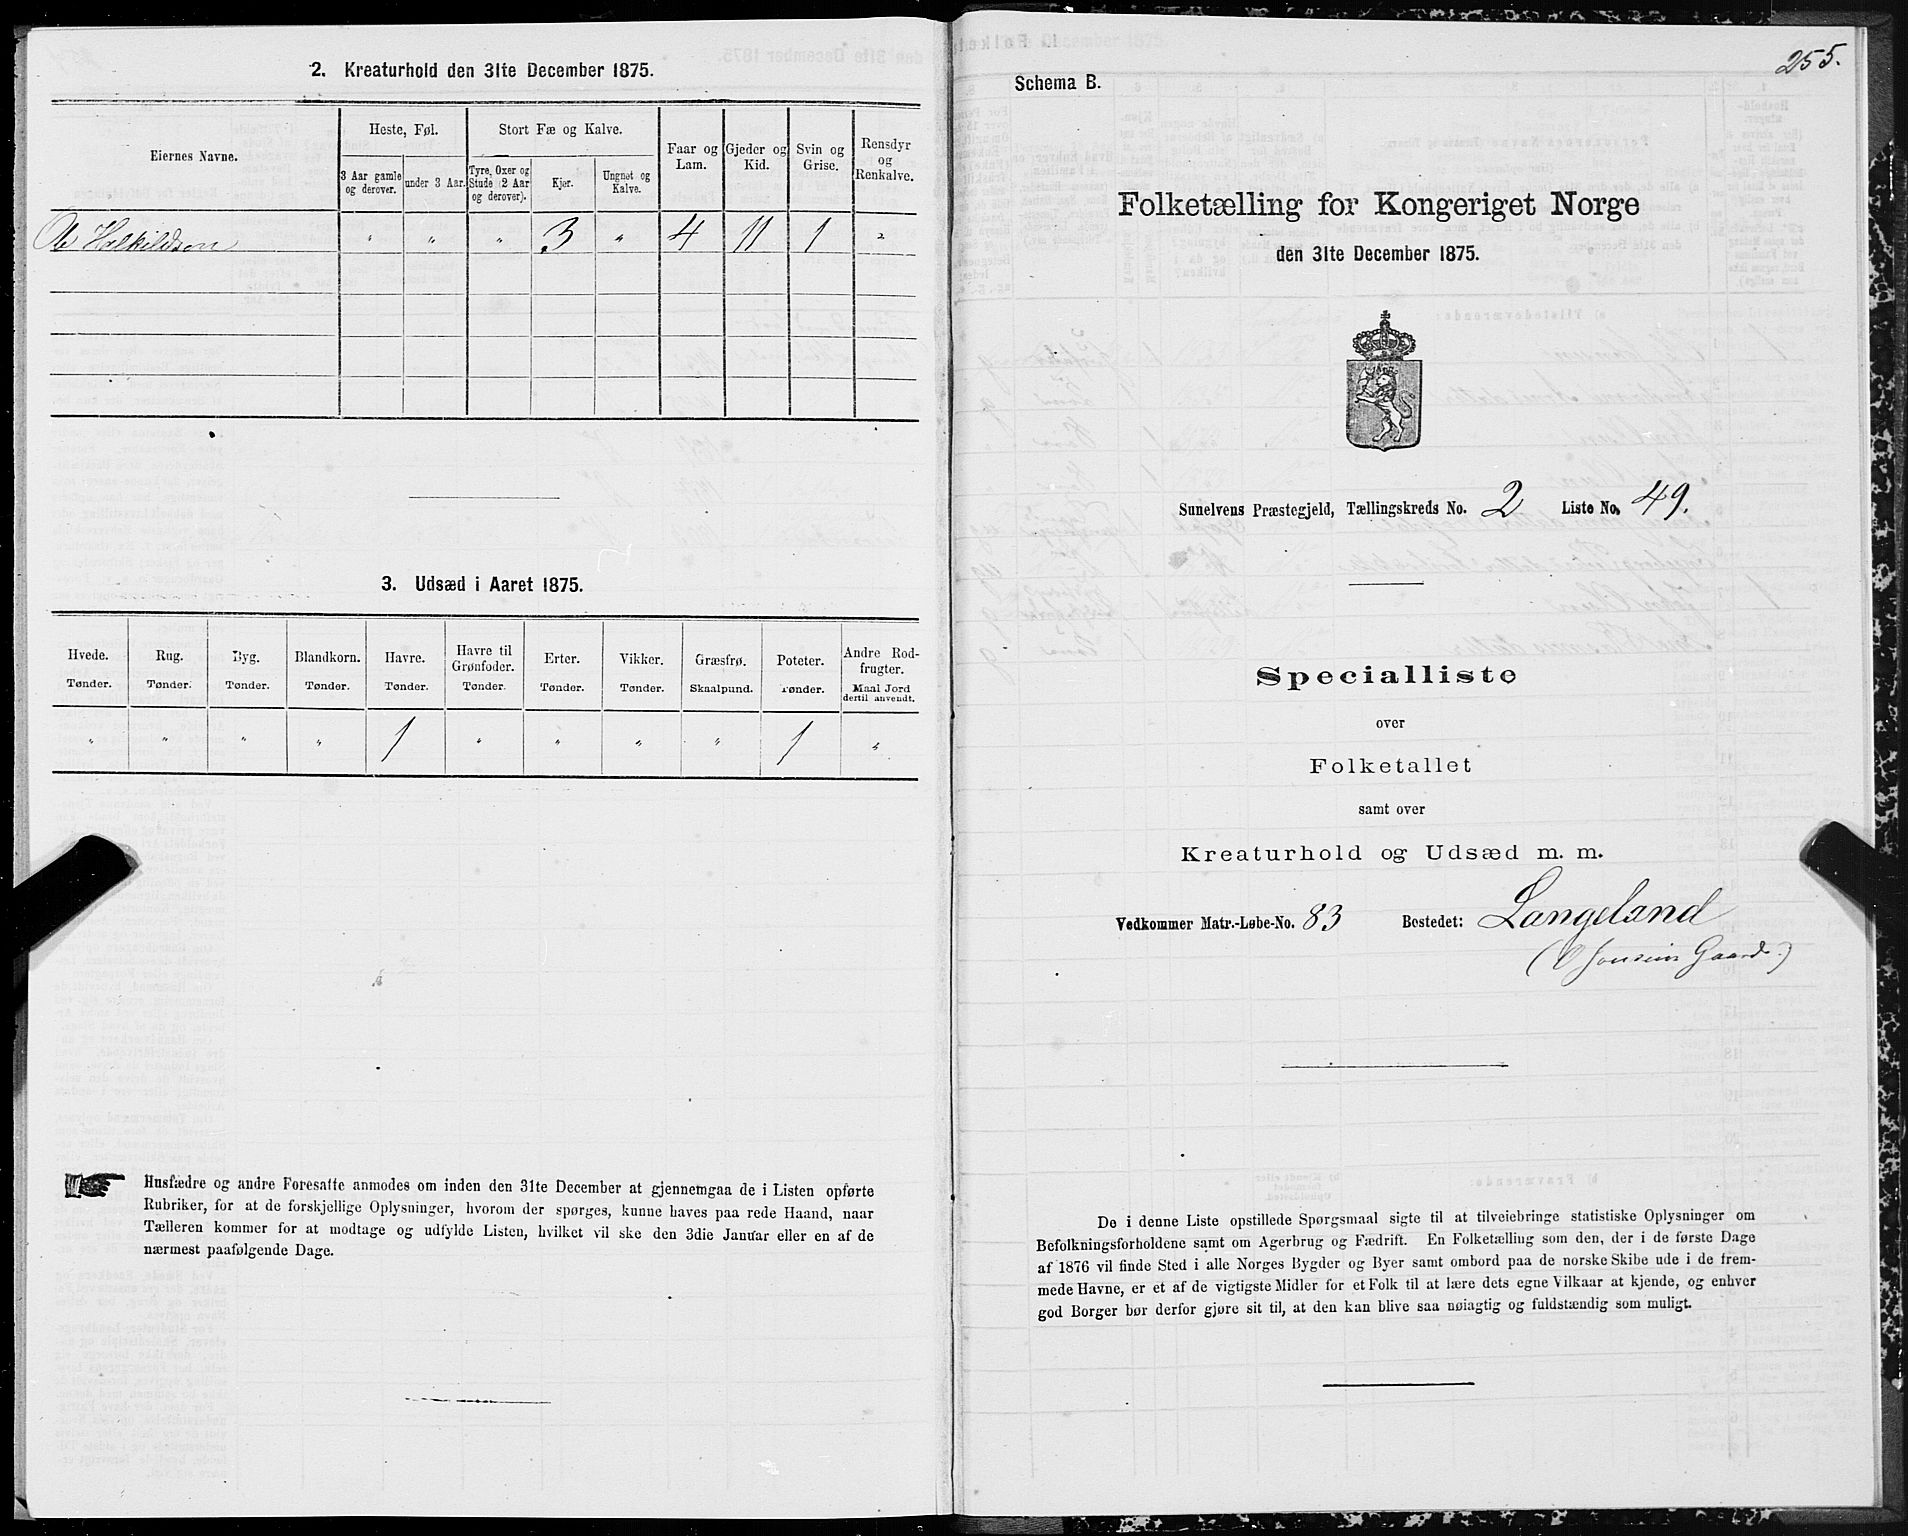 2. Kreaturhold den 31te December 1875.
Eiernes Navne.
Heste, Føl.
Stort Fæ og Kalve.
Faar og Lam.
Gjeder og Kid.
Svin og Grise.
Rensdyr og Renkalve.
3 Aar gamle og derover.
under 3 Aar.
Tyre, Oxer og Stude (2 Aar og derover).
Kjør.
Ungnøt og Kalve.
Ole Halkildson " " " 3 " 4 11 1 "
3. Udsæd i Aaret 1875.
Hvede. Rug. Byg. Blandkorn. Havre. Havre til Grønfoder. Erter. Vikker. Græsfrø. Poteter. Andre Rodfrugter.
Tønder. Tønder. Tønder. Tønder. Tønder. Tønder. Tønder. Tønder. Skaalpund. Tønder. Maal Jord dertil anvendt.
" " " " 1 " " " " 1 "
Husfædre og andre Foresatte anmodes om inden den 31te December at gjennemgaa de i Listen opførte
Rubriker, for at de forskjellige Oplysninger, hvorom der spørges, kunne haves paa rede Haand, naar
Tælleren kommer for at modtage og udfylde Listen, hvilket vil ske den 3die Januar eller en af de
nærmest paafølgende Dage.
255.
Schema B.
Folketælling for Kongeriget Norge
den 31te December 1875.
Sunelvens Præstegjeld, Tællingskreds No. 2 Liste No. 49.
Specialliste
over
Folketallet
samt over
Kreaturhold og Udsæd m. m.
Vedkommer Matr.-Løbe-No. 83 Bostedet: Langeland
Gaard.)
De i denne Liste opstillede Spørgsmaal sigte til at tilveiebringe statistiske Oplysninger om
Befolkningsforholdene samt om Agerbrug og Fædrift. En Folketælling som den, der i de første Dage
af 1876 vil finde Sted i alle Norges Bygder og Byer samt ombord paa de norske Skibe ude i de frem-
mede Havne, er et af de vigtigste Midler for et Folk til at lære dets egne Vilkaar at kjende, og enhver
god Borger bør derfor gjøre sit til, at den kan blive saa nøiagtig og fuldstændig som muligt.